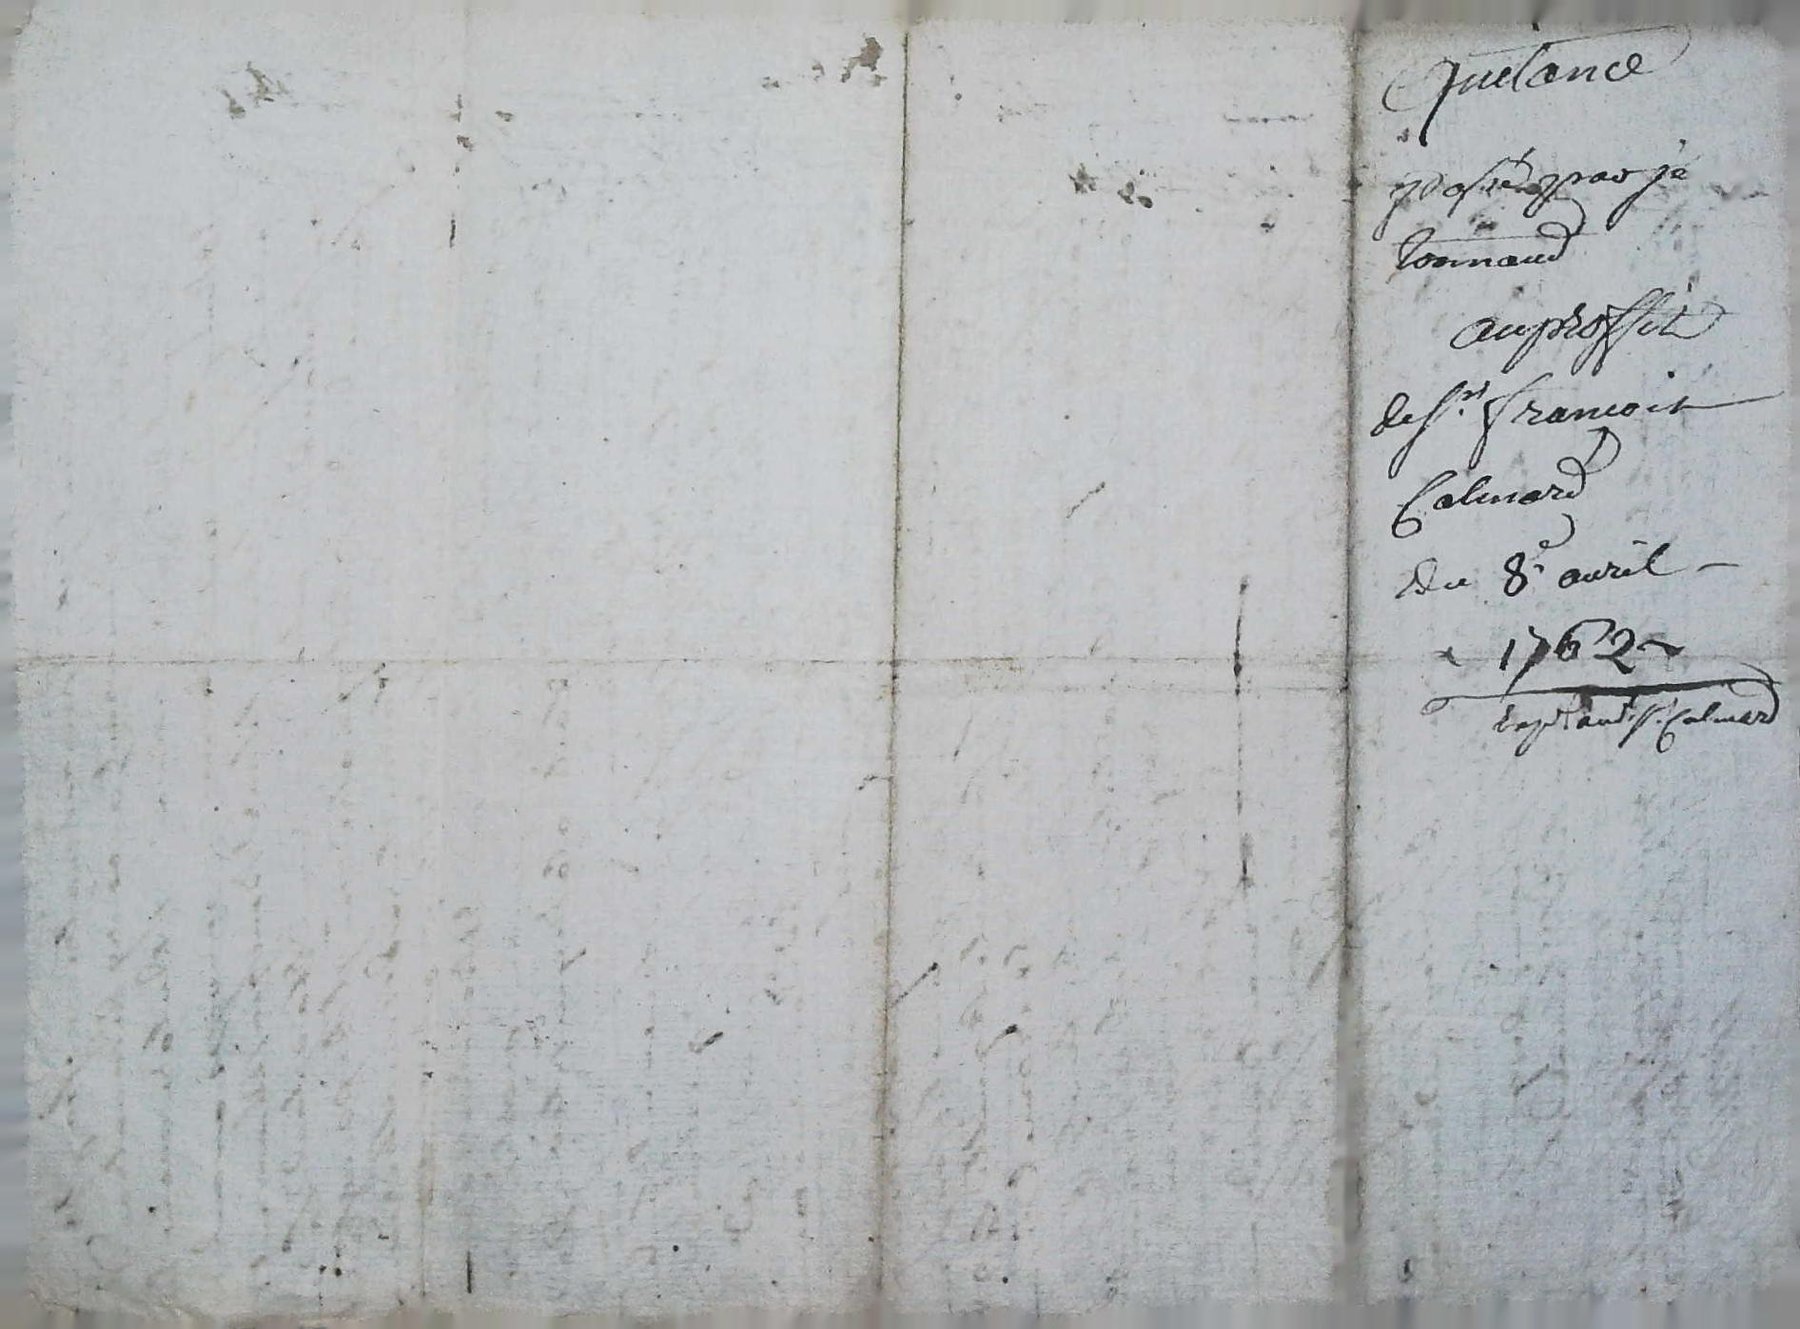 Quitance
passé par je
Tonnaud
au proffit
de Sr. francois
Calmard
du 8e avril
1762
Calmard